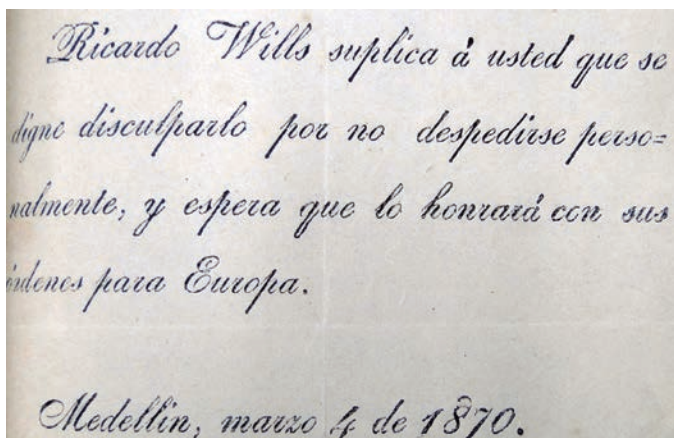 Ricardo Wills suplica á usted que se
digne disculparlo por no despedirse perso=
nalmente, y espera que lo honrará con sus
órdenes para Europa.
Medellin, marzo 4 de 1870.